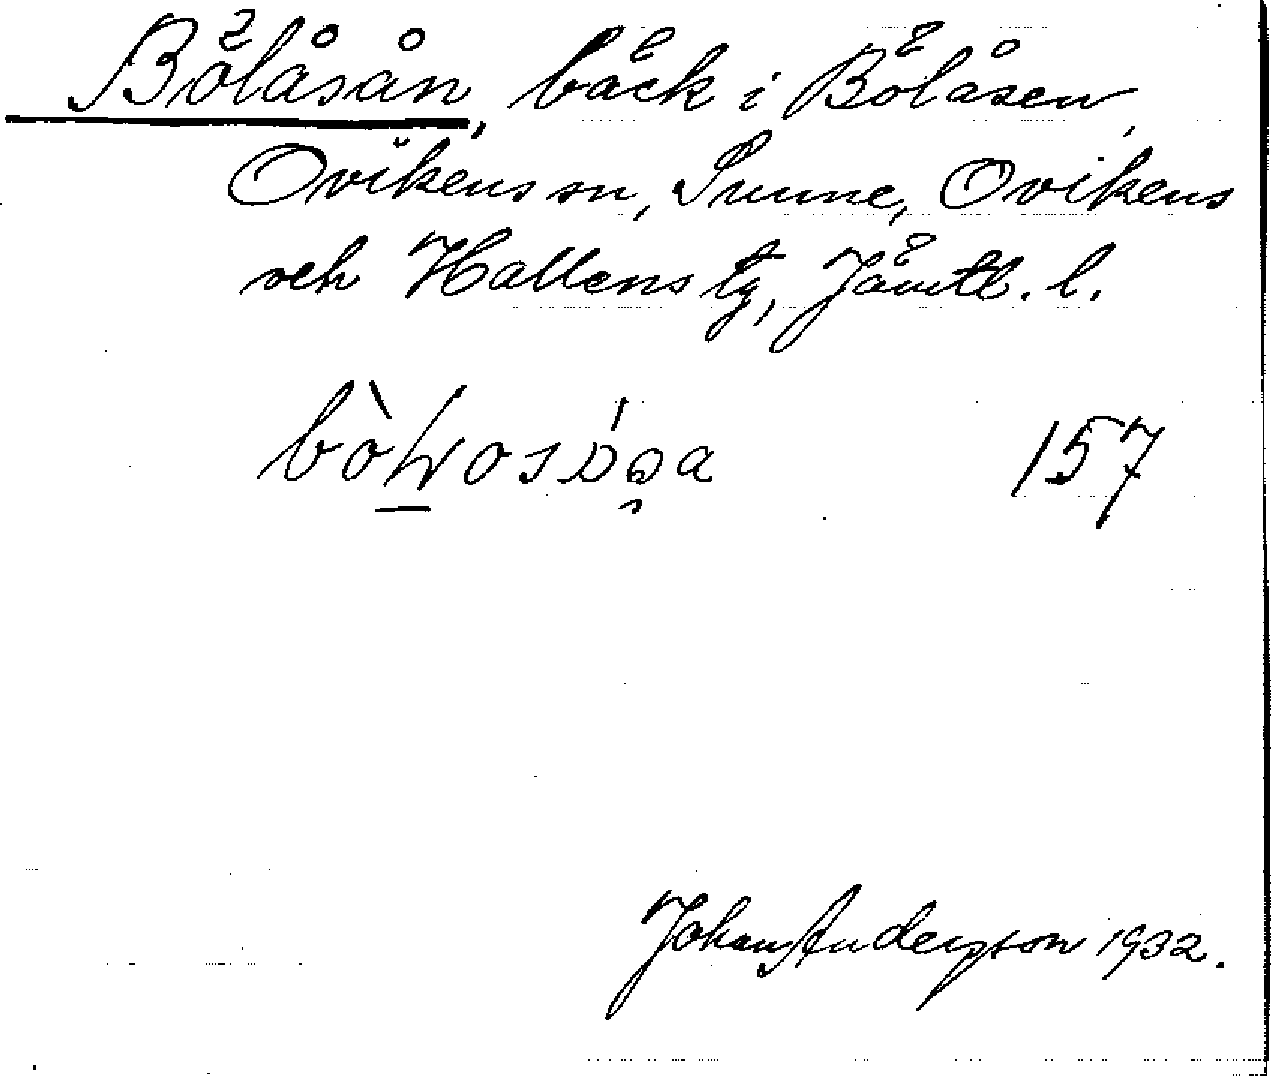 Bölåsån, bäck i Bölåsen,
Ovikens sn, Sunne, Ovikens
och Hallens tg, Jämtl. l.
157
Johan Andersson 1932.